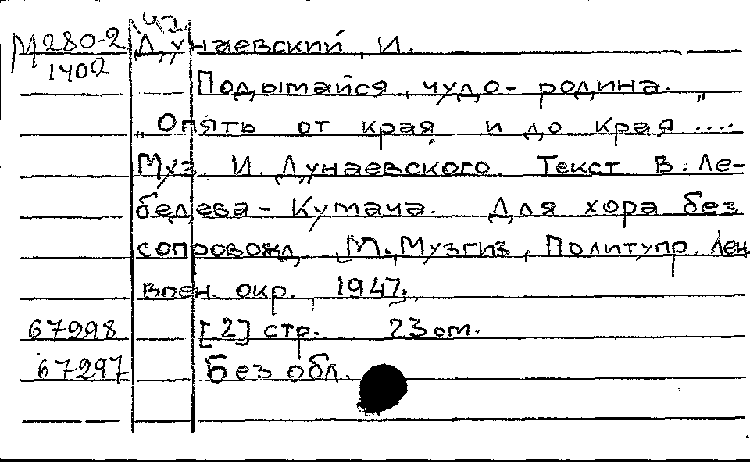 42
М280-2 Дунаевский, И.
1402
Подымайся, чудо-родина.
„Опять от края и до края ....„
Муз. И. Дунаевского. Текст В. Ле-
бедева-Кумача. Для хора без
сопровожд. М., Музгиз, Политупр. Лен.
воен. окр., 1947.
67998 [2] стр. 23 см.
67297 Без обл.